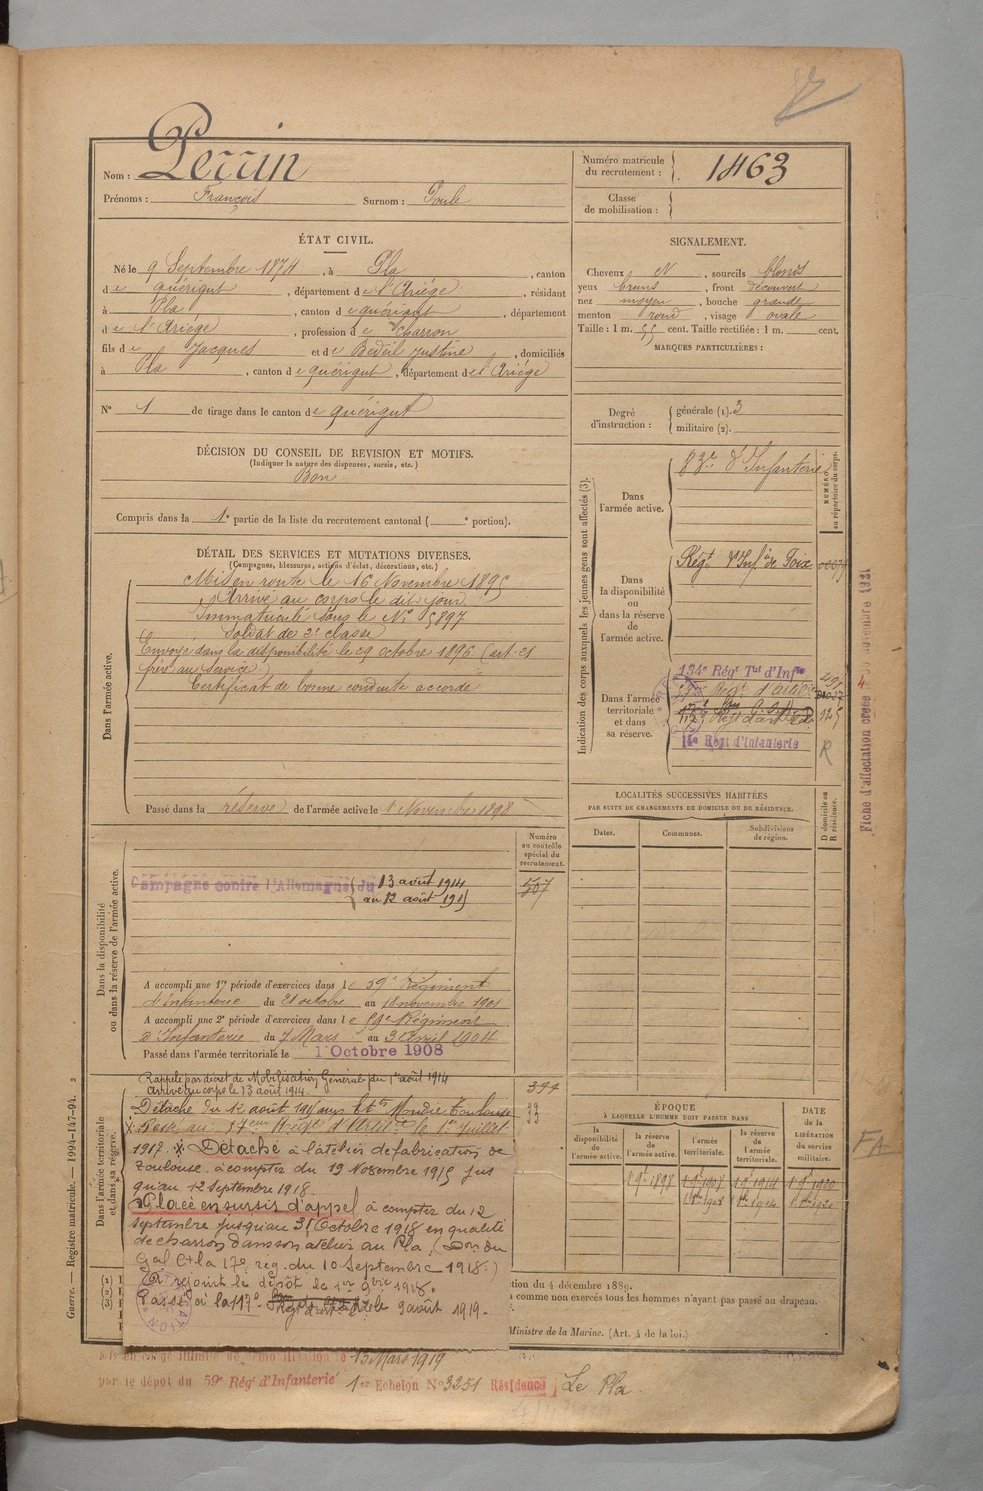 Nom : Perrin
Prénoms : François Surnom : Poule
Numéro matricule
du recrutement : 1463
Classe
de mobilisation :
ÉTAT CIVIL.
Né le 9 Septembre 1874, à Pla, canton
de quérigut, département de l'Ariége, résidant
à Pla, canton de quérigut, département
de l'Ariége, profession de charron
fils de Jacques et de Bedeil Justine, domiciliés
à Pla, canton de quérigut, département de l'Ariége
N° 1 de tirage dans le canton de quérigut
SIGNALEMENT.
Cheveux N, sourcils blonds
yeux bruns, front découvert
nez moyen, bouche grande
menton rond, visage ovale
Taille : 1 m. 55 cent. Taille rectifiée : 1 m. cent.
MARQUES PARTICULIÈRES :
Degré
d'instruction :
générale (1). 3
militaire (2).
DÉCISION DU CONSEIL DE REVISION ET MOTIFS.
(Indiquer la nature des dispenses, sursis, etc.)
Bon
Compris dans la 1e partie de la liste du recrutement cantonal ( e portion).
DÉTAIL DES SERVICES ET MUTATIONS DIVERSES.
(Campagnes, blessures, actions d'éclat, décorations, etc.)
Dans l'armée active.
Mis en route le 16 Novembre 1895
Arrivé au corps le dit jour.
Immatriculé sous le N° 5897
Soldat de 2e classe
Envoyé dans la disponibilité le 29 octobre 1896 (art. 21
frère au Service)
Certificat de bonne conduite accordé
Passé dans la réserve de l'armée active le 1 Novembre 1898
Indication des corps auxquels les jeunes gens sont affectés (3).
NUMÉRO
au répertoire du corps.
Dans
l'armée active.
83e d'Infanterie
Dans
la disponibilité
ou
dans la réserve
de
l'armée active.
Régt d'Infie de Foix
Dans l'armée
territoriale
et dans
sa réserve.
134e Régt Tal d'Infie
14e Régt d'Infanterie
R
Fiche d'affectation créée novembre 1921
LOCALITÉS SUCCESSIVES HABITÉES
PAR SUITE DE CHANGEMENTS DE DOMICILE OU DE RÉSIDENCE.
Dates.
Communes.
Subdivisions
de région.
D domicile ou
R résidence.
Dans la disponibilité
ou dans la réserve de l'armée active.
Numéro
au contrôle
spécial du
recrutement.
Campagne contre l'Allemagne du 13 août 1914
au 12 août 1915
507
A accompli une 1re période d'exercices dans le 59e Régiment
d'Infanterie du 21 octobre au 18 novembre 1901
A accompli une 2e période d'exercices dans le 59e Régiment
d'Infanterie du 7 Mars au 3 Avril 1904
Passé dans l'armée territoriale le 1 Octobre 1908
Dans l'armée territoriale
et dans sa réserve.
Rappelé par décret de Mobilisation Générale du 1er août 1914
Arrivé au corps le 13 août 1914.
394
Détaché du 12 août 1915 aux Ets Toulouse
Passé au Régt d'Artie le 1er Juillet
1917. * Détaché à l'atelier de fabrication de
Toulouse à compter du 19 Novembre 1915 jus
qu'au 12 Septembre 1918.
Placé en sursis d'appel à compter du 12
septembre jusqu'au 31 Octobre 1918 en qualité
de charron dans son atelier au Pla. (Don du
Gal Ct la 17e rég. du 10 Septembre 1918.)
A rejoint le dépôt le 1er 9bre 1918.
Passé à la 117e le 9 août 1919.
ÉPOQUE
À LAQUELLE L'HOMME DOIT PASSER DANS
DATE
de la
LIBÉRATION
du service
militaire.
la
disponibilité
de l'armée active.
la réserve
de
l'armée active.
l'armée
territoriale.
la réserve
de l'armée
territoriale.
FA
tion du 4 décembre 1889.
a comme non exercés tous les hommes n'ayant pas passé au drapeau.
Ministre de la Marine. (Art. 4 de la loi.)
Mis en congé illimité de démobilisation le 13 Mars 1919
par le dépôt du 59e Régt d'Infanterie 1er Echelon N° 3251 Résidence Le Pla
Guerre. — Registre matricule. — 1994-147-94.